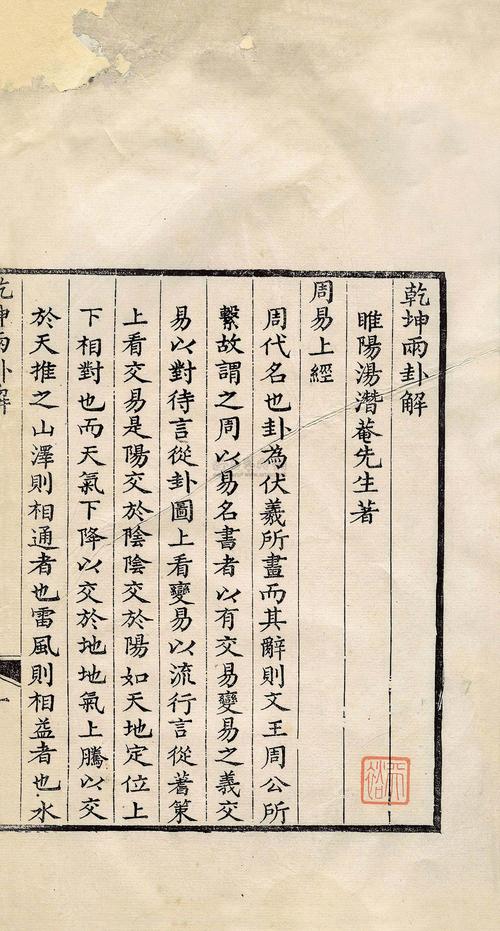 乾坤兩卦解
睢陽湯潛菴先生著
周易上經
周代名也卦為伏羲所畫而其辭則文王周公所
繫故謂之周以易名書者以有交易變易之義交
易以對待言從卦圖上看變易以流行言從蓍策
上看交易是陽交於陰陰交於陽如天地定位上
下相對也而天氣下降以交於地地氣上騰以交
於天推之山澤則相通者也雷風則相益者也水
乾坤兩卦解
一